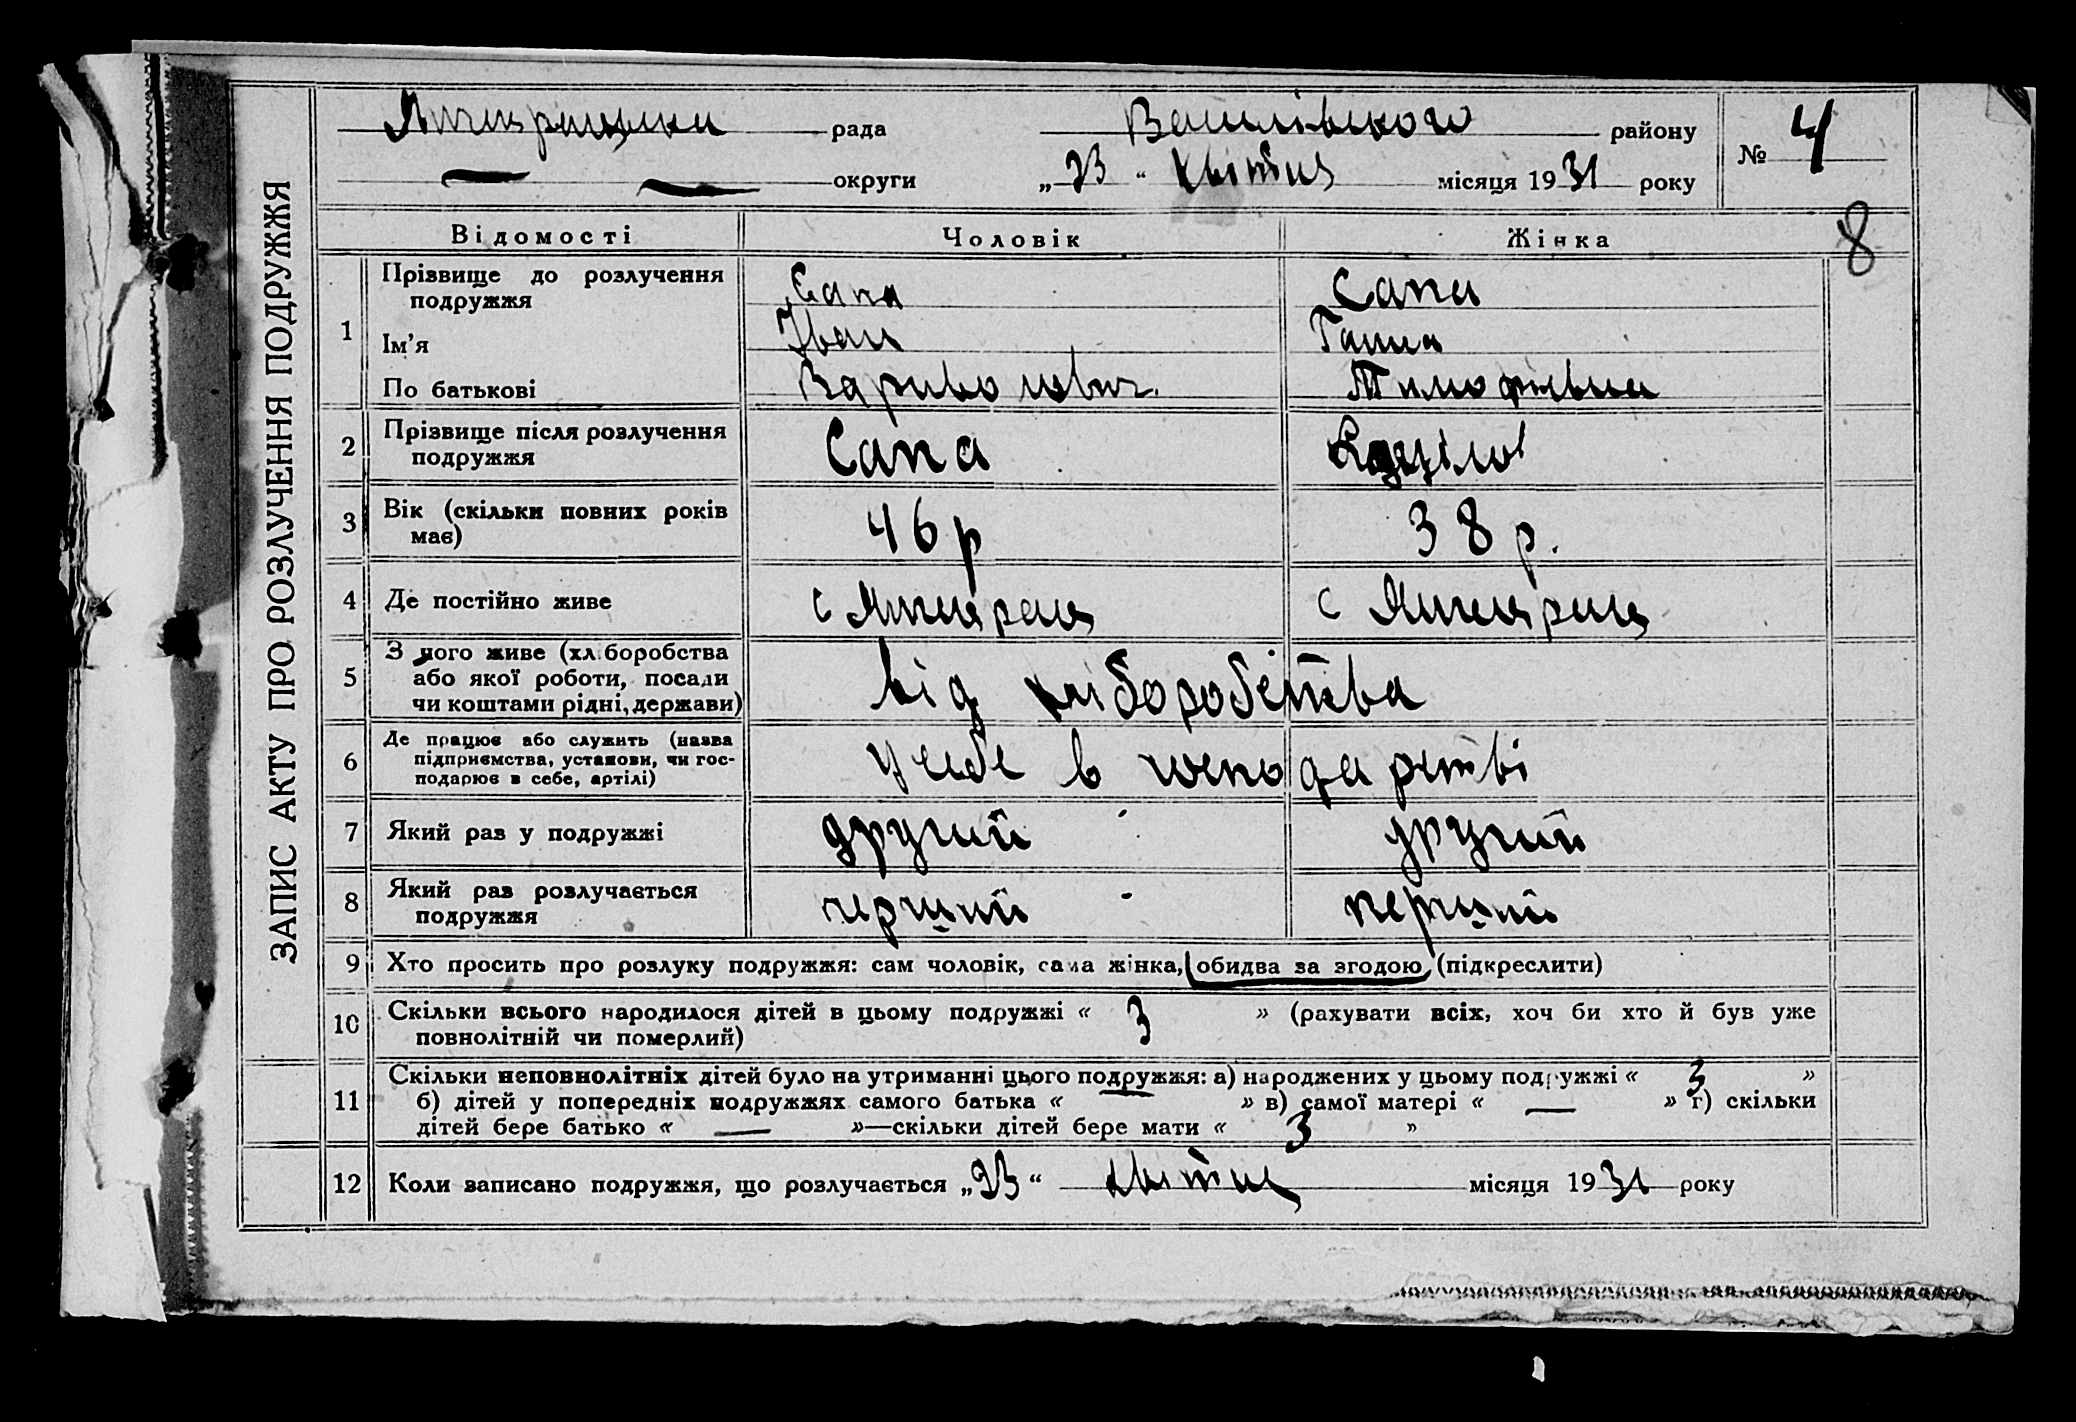 рада
району
№ 4
округи
„23“ квітня місяця 1931 року
8
ЗАПИС АКТУ ПРО РОЗЛУЧЕННЯ ПОДРУЖЖЯ
Відомості Чоловік Жінка
1
Прізвище до розлучення
подружжя
Сапа Сапа
Ім’я Іван Ганна
По батькові Тимофіївна
2 Прізвище після розлучення
подружжя
Сапа
3 Вік (скільки повних років
має)
46 р 38 р.
4 Де постійно живе с с
5 З чого живе (хліборобства
або якої роботи, посади
чи коштами рідні, держави)
від хліборобства
6 Де працює або служить (назва
підприємства, установи, чи гос-
подарює в себе, артілі)
у себе в господарстві
7 Який раз у подружжі другий другий
8 Який раз розлучається
подружжя
перший перший
9 Хто просить про розлуку подружжя: сам чоловік, сама жінка, обидва за згодою (підкреслити)
10 Скільки всього народилося дітей в цьому подружжі « 3 » (рахувати всіх, хоч би хто й був уже
повнолітній чи померлий)
11 Скільки неповнолітніх дітей було на утриманні цього подружжя: а) народжених у цьому подружжі « 3 »
б) дітей у попередніх подружжях самого батька « — » в) самої матері « — » г) скільки
дітей бере батько « — »—скільки дітей бере мати « 3 »
12 Коли записано подружжя, що розлучається „23“ квітня місяця 1931 року